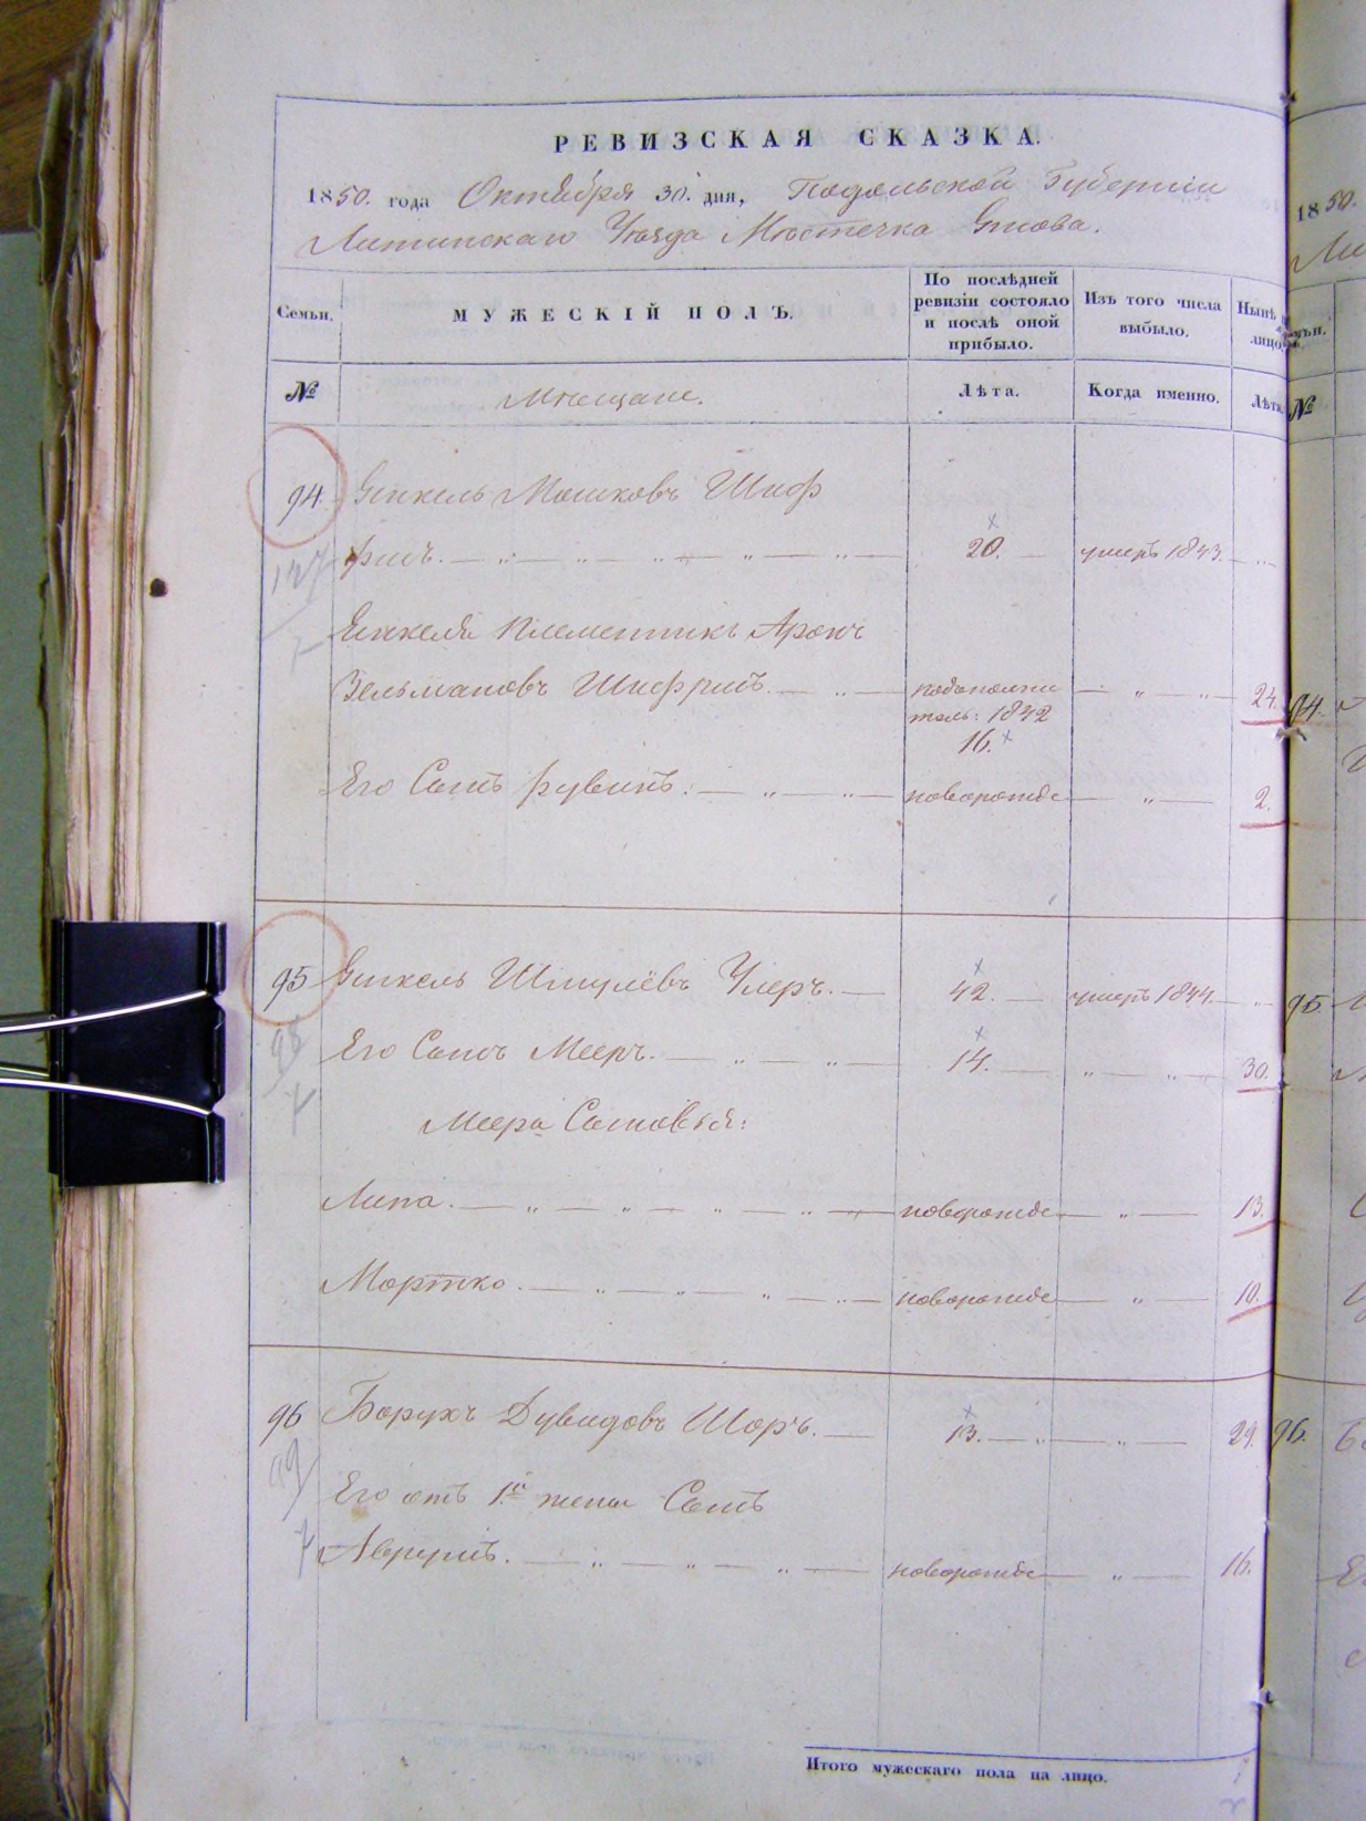 РЕВИЗСКАЯ СКАЗКА.
1850. года Октября 30. дня, Подольской Губернiи
Литинскаго Уѣзда Мѣстечка Янова.
Семьи.
МУЖЕСКIЙ ПОЛЪ.
По послѣдней ревизiи состояло и послѣ оной прибыло.
Изъ того числа выбыло.
Нынѣ
лицо
№
Мѣщане.
Лѣта.
Когда именно.
Лѣта
94. Янкель Мошковъ Шиф
ринъ. 20. умеръ 1843.
147
Янкеля племянникъ Аронъ
Зельмановъ Шифринъ. подополни 24.
тель: 1842
16.
Его Сынъ Рувинъ. новорожде 2.
95 Янкель Шмулёвъ Улеръ. 42. умеръ 1844.
98
Его Сынъ Мееръ. 14. 30.
Меера Сыновья:
Липа. новорожде 13.
Мортко. новорожде 10.
96 Борухъ Дувидовъ Шоръ. 13. 29.
99
Его отъ 1й жены Сынъ
Аврумъ. новорожде 16.
Итого мужескаго пола на лицо.
18 50.
№
94.
95.
96.